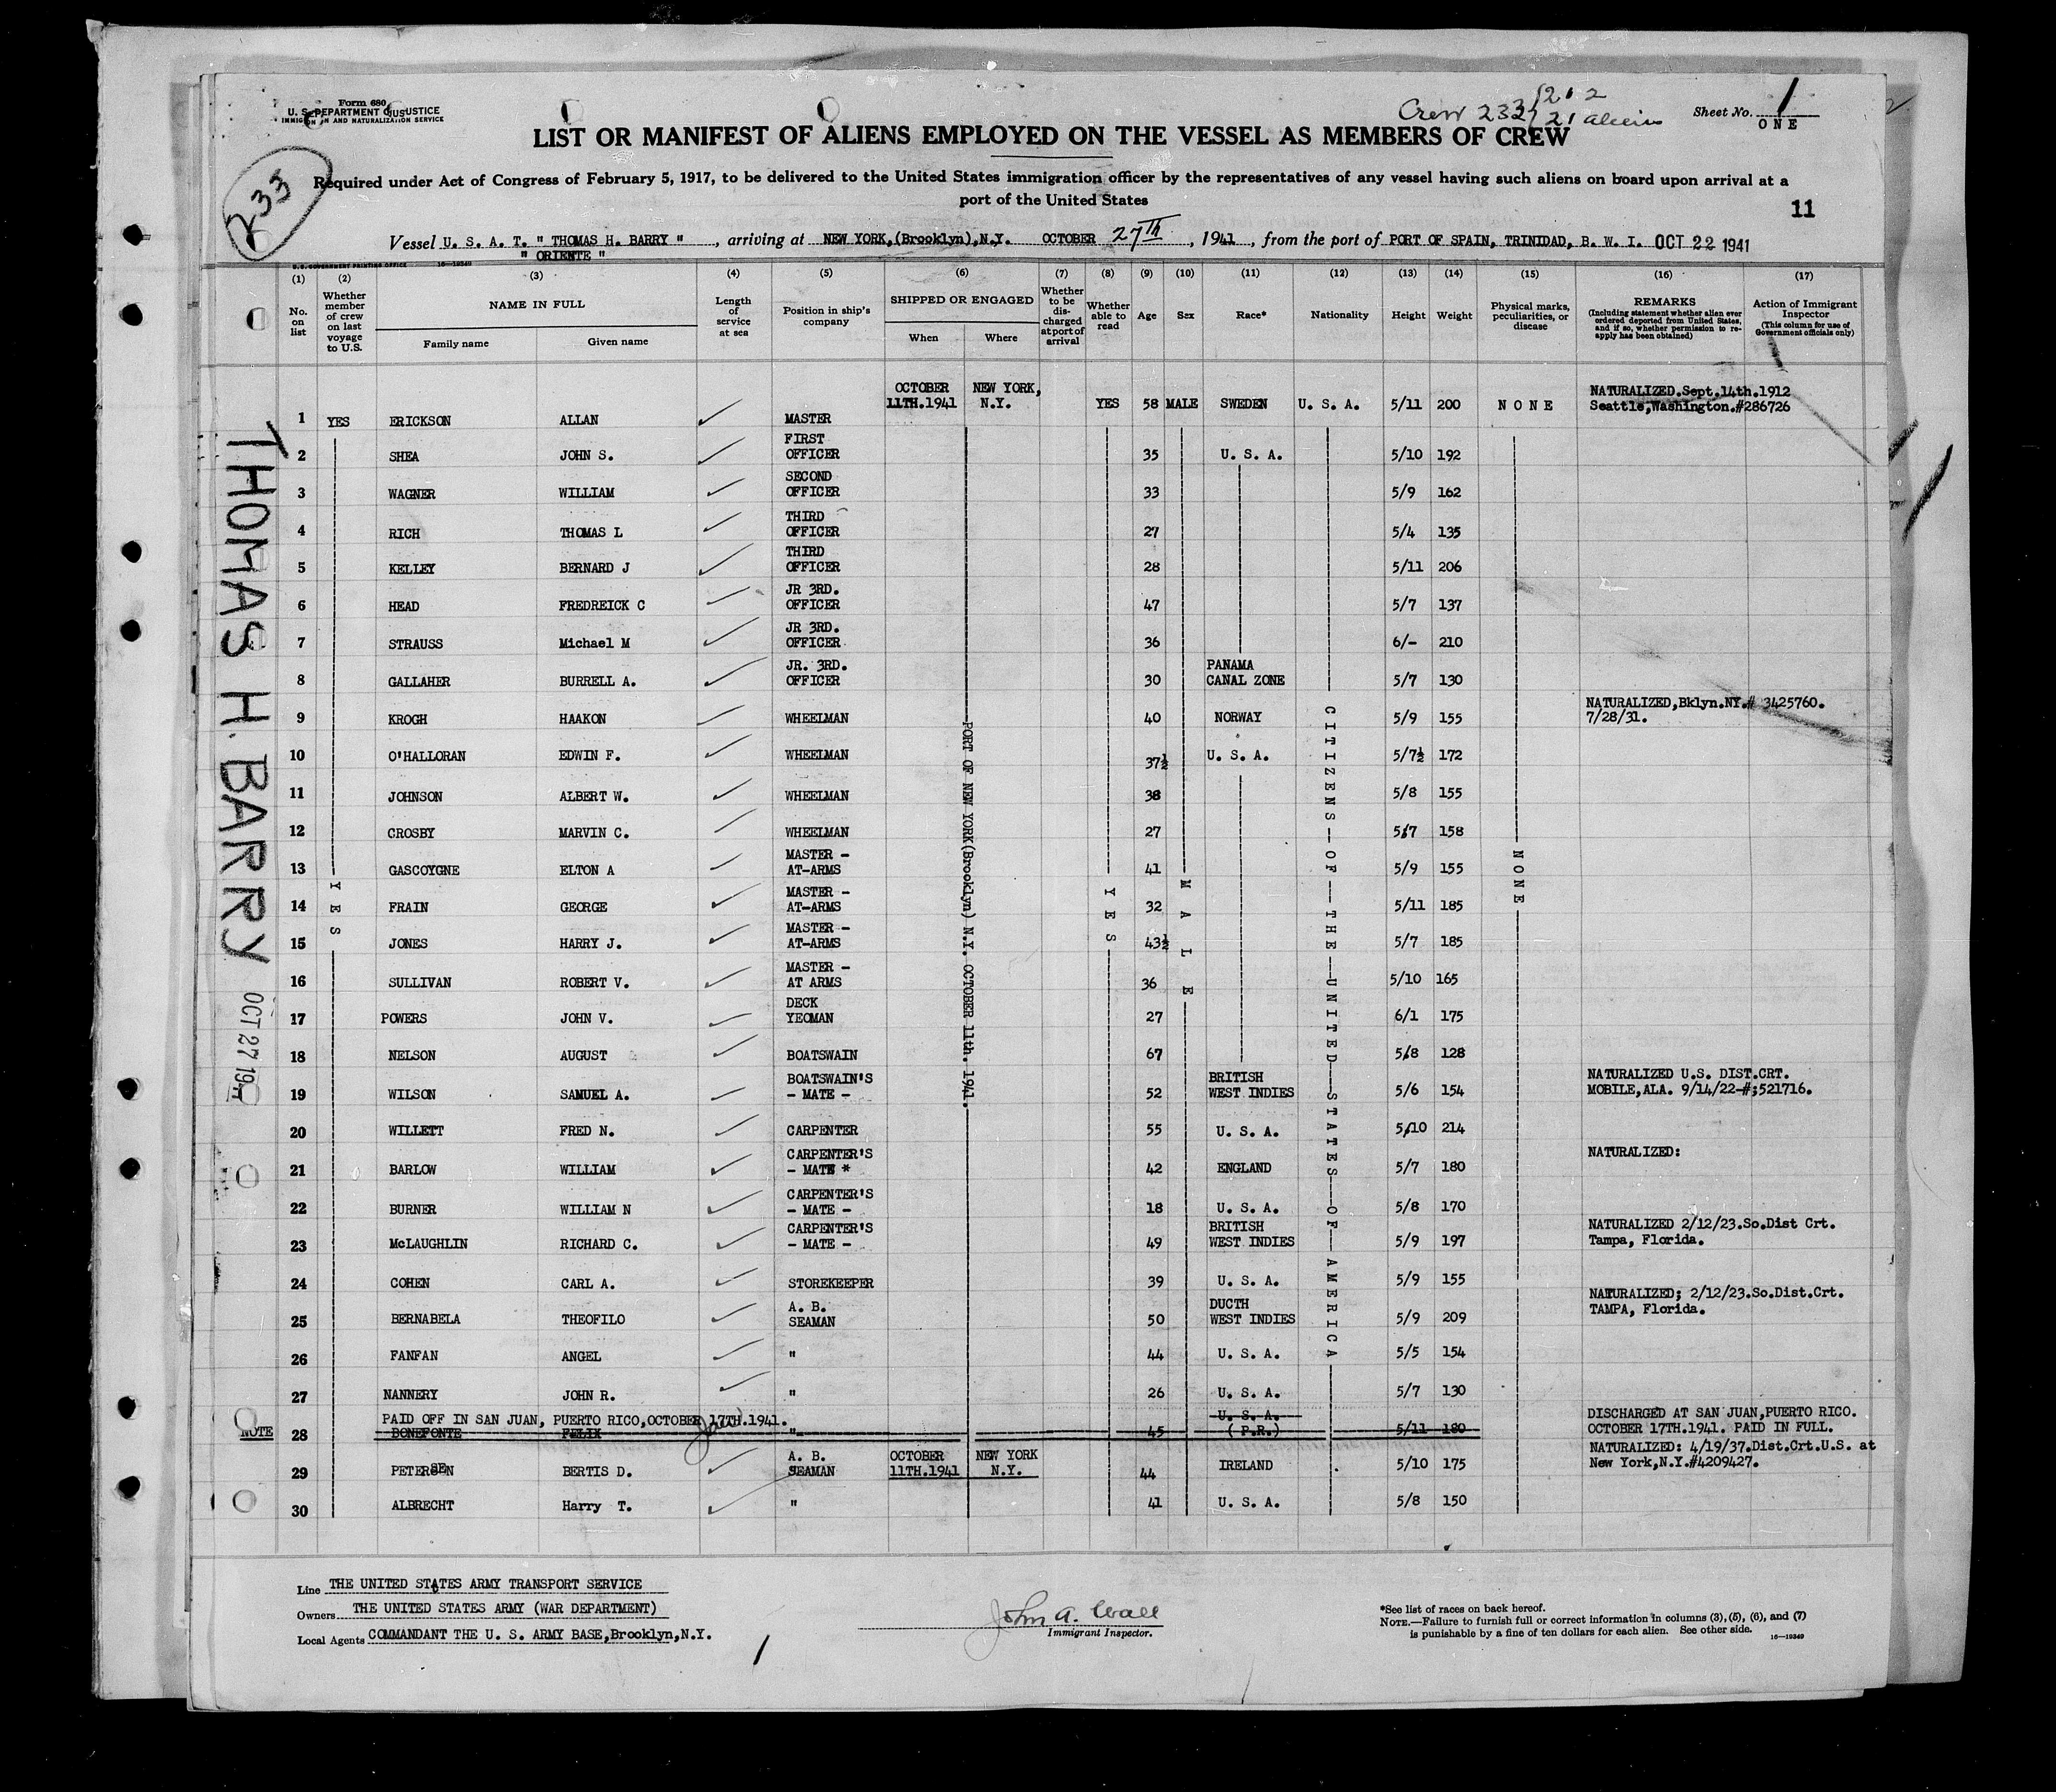 Form 680
U. S. DEPARTMENT OF JUSTICE
IMMIGRATION AND NATURALIZATION SERVICE
Crew 233 212
21 aliens
Sheet No. 1
ONE
LIST OR MANIFEST OF ALIENS EMPLOYED ON THE VESSEL AS MEMBERS OF CREW
233
Required under Act of Congress of February 5, 1917, to be delivered to the United States immigration officer by the representatives of any vessel having such aliens on board upon arrival at a
port of the United States
11
Vessel U. S. A. T. " THOMAS H. BARRY " , arriving at NEW YORK,(Brooklyn),N.Y. OCTOBER 27th , 1941 , from the port of PORT OF SPAIN, TRINIDAD, B. W. I. OCT 22 1941
" ORIENTE "
U.S. GOVERNMENT PRINTING OFFICE 16-19349
(1) (2) (3) (4) (5) (6) (7) (8) (9) (10) (11) (12) (13) (14) (15) (16) (17)
No. on list
Whether member of crew on last voyage to U.S.
NAME IN FULL
Family name Given name
Length of service at sea
Position in ship's company
SHIPPED OR ENGAGED
When Where
Whether to be discharged at port of arrival
Whether able to read
Age
Sex
Race*
Nationality
Height
Weight
Physical marks, peculiarities, or disease
REMARKS
(Including statement whether alien ever ordered deported from United States, and if so, whether permission to reapply has been obtained)
Action of Immigrant Inspector
(This column for use of Government officials only)
1 YES ERICKSON ALLAN MASTER OCTOBER 11TH.1941 NEW YORK, N.Y. YES 58 MALE SWEDEN U. S. A. 5/11 200 NONE NATURALIZED.Sept.14th.1912 Seattle,Washington.#286726
2 SHEA JOHN S. FIRST OFFICER 35 U. S. A. 5/10 192
3 WAGNER WILLIAM SECOND OFFICER 33 5/9 162
4 RICH THOMAS L THIRD OFFICER 27 5/4 135
5 KELLEY BERNARD J THIRD OFFICER 28 5/11 206
6 HEAD FREDREICK C JR 3RD. OFFICER 47 5/7 137
7 STRAUSS Michael M JR 3RD. OFFICER 36 6/- 210
8 GALLAHER BURRELL A. JR. 3RD. OFFICER 30 PANAMA CANAL ZONE 5/7 130
9 KROGH HAAKON WHEELMAN 40 NORWAY 5/9 155 NATURALIZED,Bklyn.NY.# 3425760. 7/28/31.
10 O'HALLORAN EDWIN F. WHEELMAN 37½ U. S. A. 5/7½ 172
11 JOHNSON ALBERT W. WHEELMAN 38 5/8 155
12 CROSBY MARVIN C. WHEELMAN 27 5/7 158
13 GASCOYGNE ELTON A MASTER - AT-ARMS 41 5/9 155
14 FRAIN GEORGE MASTER - AT-ARMS 32 5/11 185
15 JONES HARRY J. MASTER - AT-ARMS 43½ 5/7 185
16 SULLIVAN ROBERT V. MASTER - AT ARMS 36 5/10 165
17 POWERS JOHN V. DECK YEOMAN 27 6/1 175
18 NELSON AUGUST BOATSWAIN 67 5/8 128
19 WILSON SAMUEL A. BOATSWAIN'S - MATE - 52 BRITISH WEST INDIES 5/6 154 NATURALIZED U.S. DIST.CRT. MOBILE,ALA. 9/14/22-#;521716.
20 WILLETT FRED N. CARPENTER 55 U. S. A. 5/10 214
21 BARLOW WILLIAM CARPENTER'S - MATE * 42 ENGLAND 5/7 180 NATURALIZED:
22 BURNER WILLIAM N CARPENTER'S - MATE - 18 U. S. A. 5/8 170
23 McLAUGHLIN RICHARD C. CARPENTER'S - MATE - 49 BRITISH WEST INDIES 5/9 197 NATURALIZED 2/12/23.So.Dist Crt. Tampa, Florida.
24 COHEN CARL A. STOREKEEPER 39 U. S. A. 5/9 155
25 BERNABELA THEOFILO A. B. SEAMAN 50 DUCTH WEST INDIES 5/9 209 NATURALIZED; 2/12/23.So.Dist.Crt. TAMPA, Florida.
26 FANFAN ANGEL " 44 U. S. A. 5/5 154
27 NANNERY JOHN R. " 26 U. S. A. 5/7 130
PAID OFF IN SAN JUAN, PUERTO RICO,OCTOBER 17TH.1941.
NOTE 28 BONEFONTE FELIX " 45 U. S. A. (P.R.) 5/11 180 DISCHARGED AT SAN JUAN,PUERTO RICO. OCTOBER 17TH.1941. PAID IN FULL.
29 PETERSEN BERTIS D. A. B. SEAMAN OCTOBER 11TH.1941 NEW YORK N.Y. 44 IRELAND 5/10 175 NATURALIZED: 4/19/37.Dist.Crt.U.S. at New York,N.Y.#4209427.
30 ALBRECHT Harry T. " 41 U. S. A. 5/8 150
YES
PORT OF NEW YORK(Brooklyn) N.Y. OCTOBER 11th. 1941.
YES
MALE
CITIZENS-OF-THE-UNITED-STATES-OF-AMERICA
NONE
THOMAS H. BARRY OCT 27 1941
Line THE UNITED STATES ARMY TRANSPORT SERVICE
Owners THE UNITED STATES ARMY (WAR DEPARTMENT)
Local Agents COMMANDANT THE U. S. ARMY BASE,Brooklyn,N.Y.
John A. Wall
Immigrant Inspector.
*See list of races on back hereof.
NOTE.—Failure to furnish full or correct information in columns (3), (5), (6), and (7)
is punishable by a fine of ten dollars for each alien. See other side. 16-19349